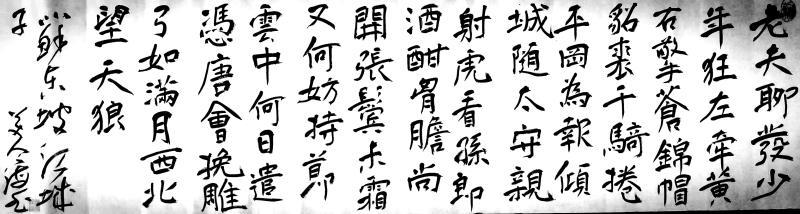 老夫聊發少
年狂左牽黃
右擎蒼錦帽
貂裘千騎捲
平岡為報傾
城隨太守親
射虎看孫郎
酒酣胷膽尚
開張鬢未霜
又何妨持節
雲中何日遣
憑唐會挽雕
弓如滿月西北
望天狼
蘇東坡江城
子